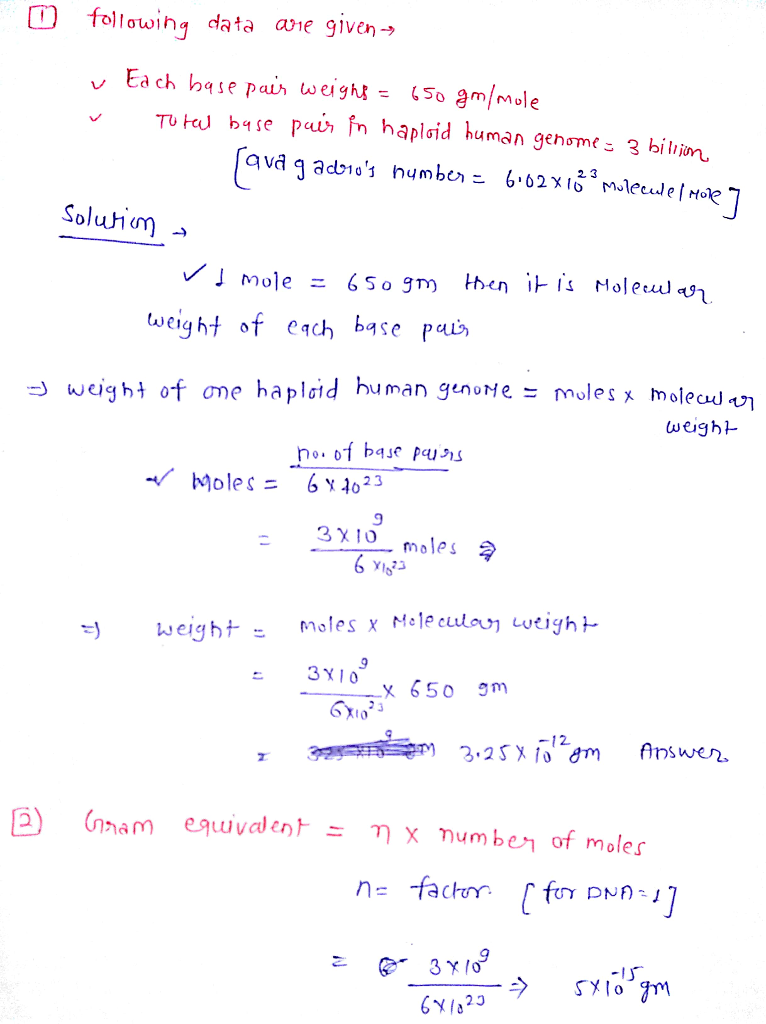 1 following data are given →
✓ Each base pair weight = 650 gm/mole
✓ Total base pair in haploid human genome = 3 billion
[avagadro's number = 6.02 x 10²³ molecule/Mole]
Solution →
✓ 1 mole = 650 gm then it is Molecular
weight of each base pair
⇒ weight of one haploid human genome = moles x molecular
weight
✓ Moles = no. of base pairs / 6 x 10²³
= 3 x 10⁹ / 6 x 10²³ moles ⇒
⇒ weight = moles x Molecular weight
= 3 x 10⁹ / 6 x 10²³ x 650 gm
= 3.25 x 10⁻¹² gm Answer
2 Gram equivalent = n x number of moles
n = factor [for DNA = 1]
= 3 x 10⁹ / 6 x 10²³ ⇒ 5 x 10⁻¹⁵ gm